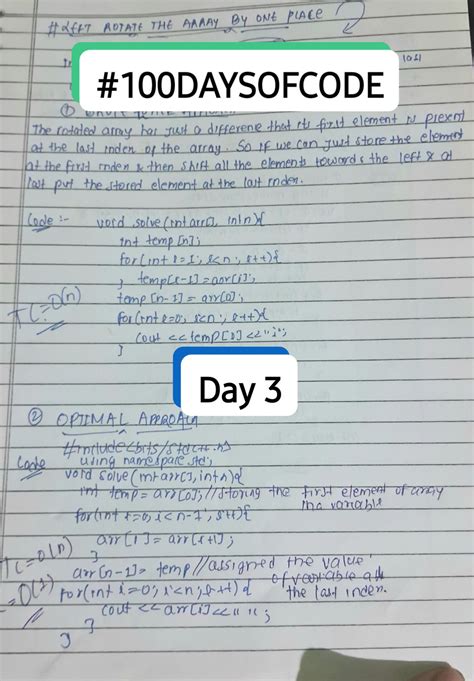 # LEFT ROTATE THE ARRAY BY ONE PLACE
#100DAYSOFCODE
The rotated array has just a difference that its first element is present
at the last index of the array. So if we can just store the element
at the first index & then shift all the elements towards the left & at
last put the stored element at the last index.
Code :- void solve(int arr[], int n){
int temp[n];
for(int i=1; i<n; i++){
} temp[i-1]=arr[i];
TC=O(n)
temp[n-1] = arr[0];
for(int i=0; i<n; i++){
cout <<temp[i]<<" ";
}
Day 3
② OPTIMAL APPROACH
#include<bits/stdc++.h>
Code using namespace std;
void solve(int arr[], int n){
int temp = arr[0]; //storing the first element of array
the variable
for(int i=0; i<n-1; i++){
arr[i] = arr[i+1];
TC=O(n)
}
arr[n-1] = temp //assigned the value
of variable at
=O(1)
for(int i=0; i<n; i++) { the last index.
cout << arr[i]<<" ";
}
}